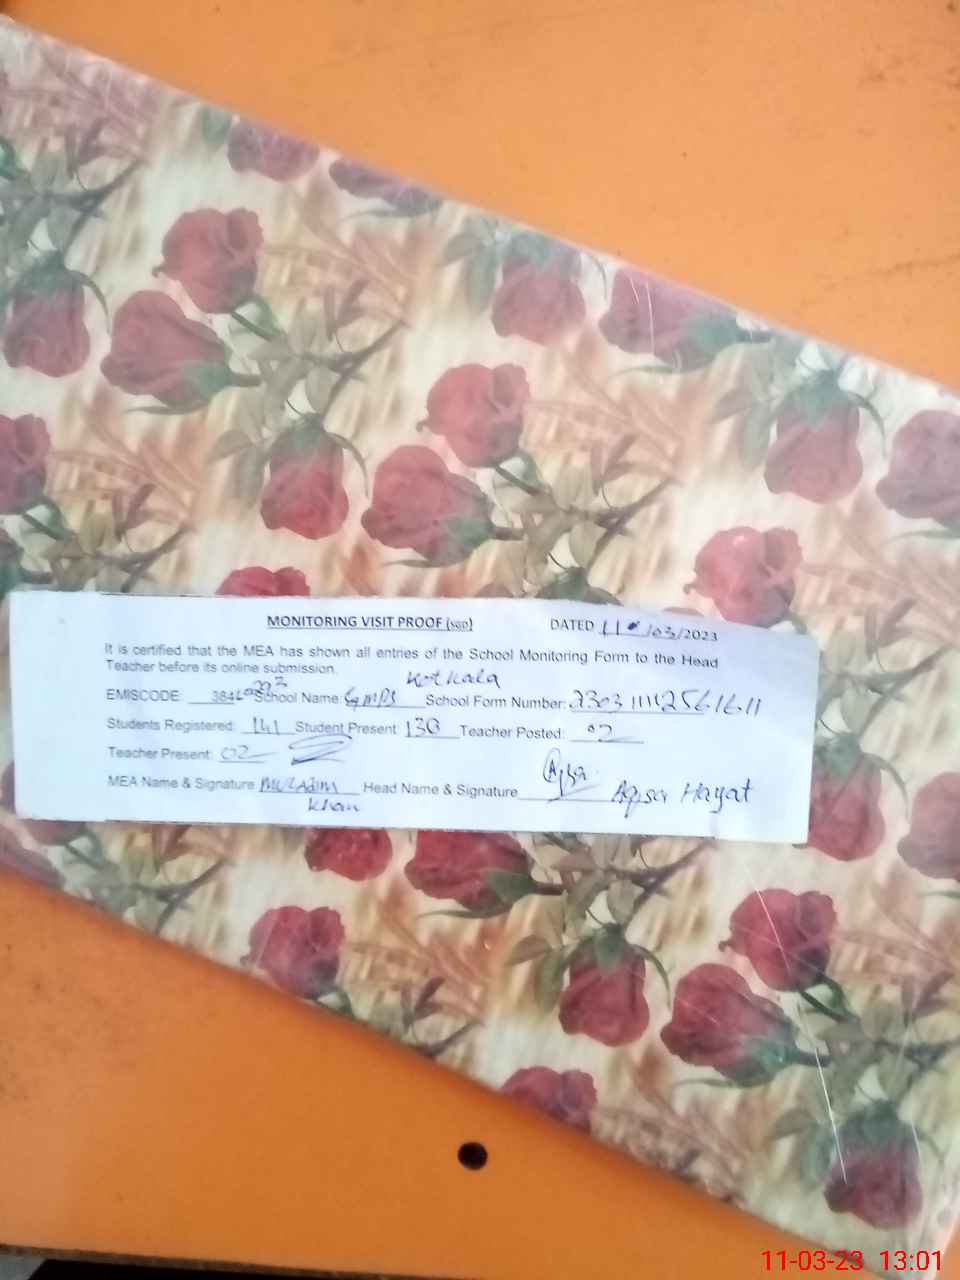 MONITORING VISIT PROOF (SGD) DATED 11/03/2023
It is certified that the MEA has shown all entries of the School Monitoring Form to the Head
Teacher before its online submission.
Kot Kala
EMISCODE: 384 School Name: GMPS School Form Number: 2303111125616.11
Students Registered: 141 Student Present: 130 Teacher Posted: 02
Teacher Present: 02
MEA Name & Signature Head Name & Signature Aqsa Hayat
Khan
11-03-23 13:01